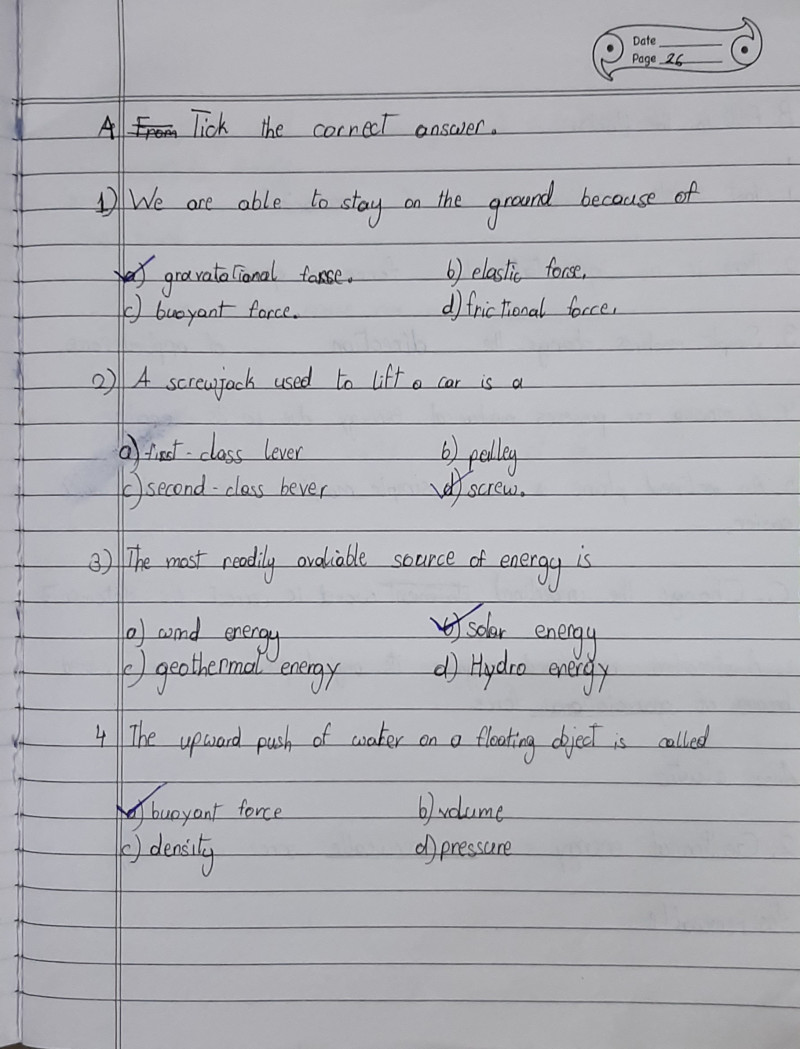 Date
Page 26
A From Tick the correct answer.
1) We are able to stay on the ground because of
a) gravatational forse. b) elastic forse.
c) buoyant force. d) frictional force.
2) A screwjack used to lift a car is a
a) first-class lever b) pelley
c) second-class bever d) screw.
3) The most readily avaliable source of energy is
a) wind energy b) solar energy
c) geothermal energy d) Hydro energy
4 The upward push of water on a floating object is called
a) buoyant force b) volume
c) density d) pressure